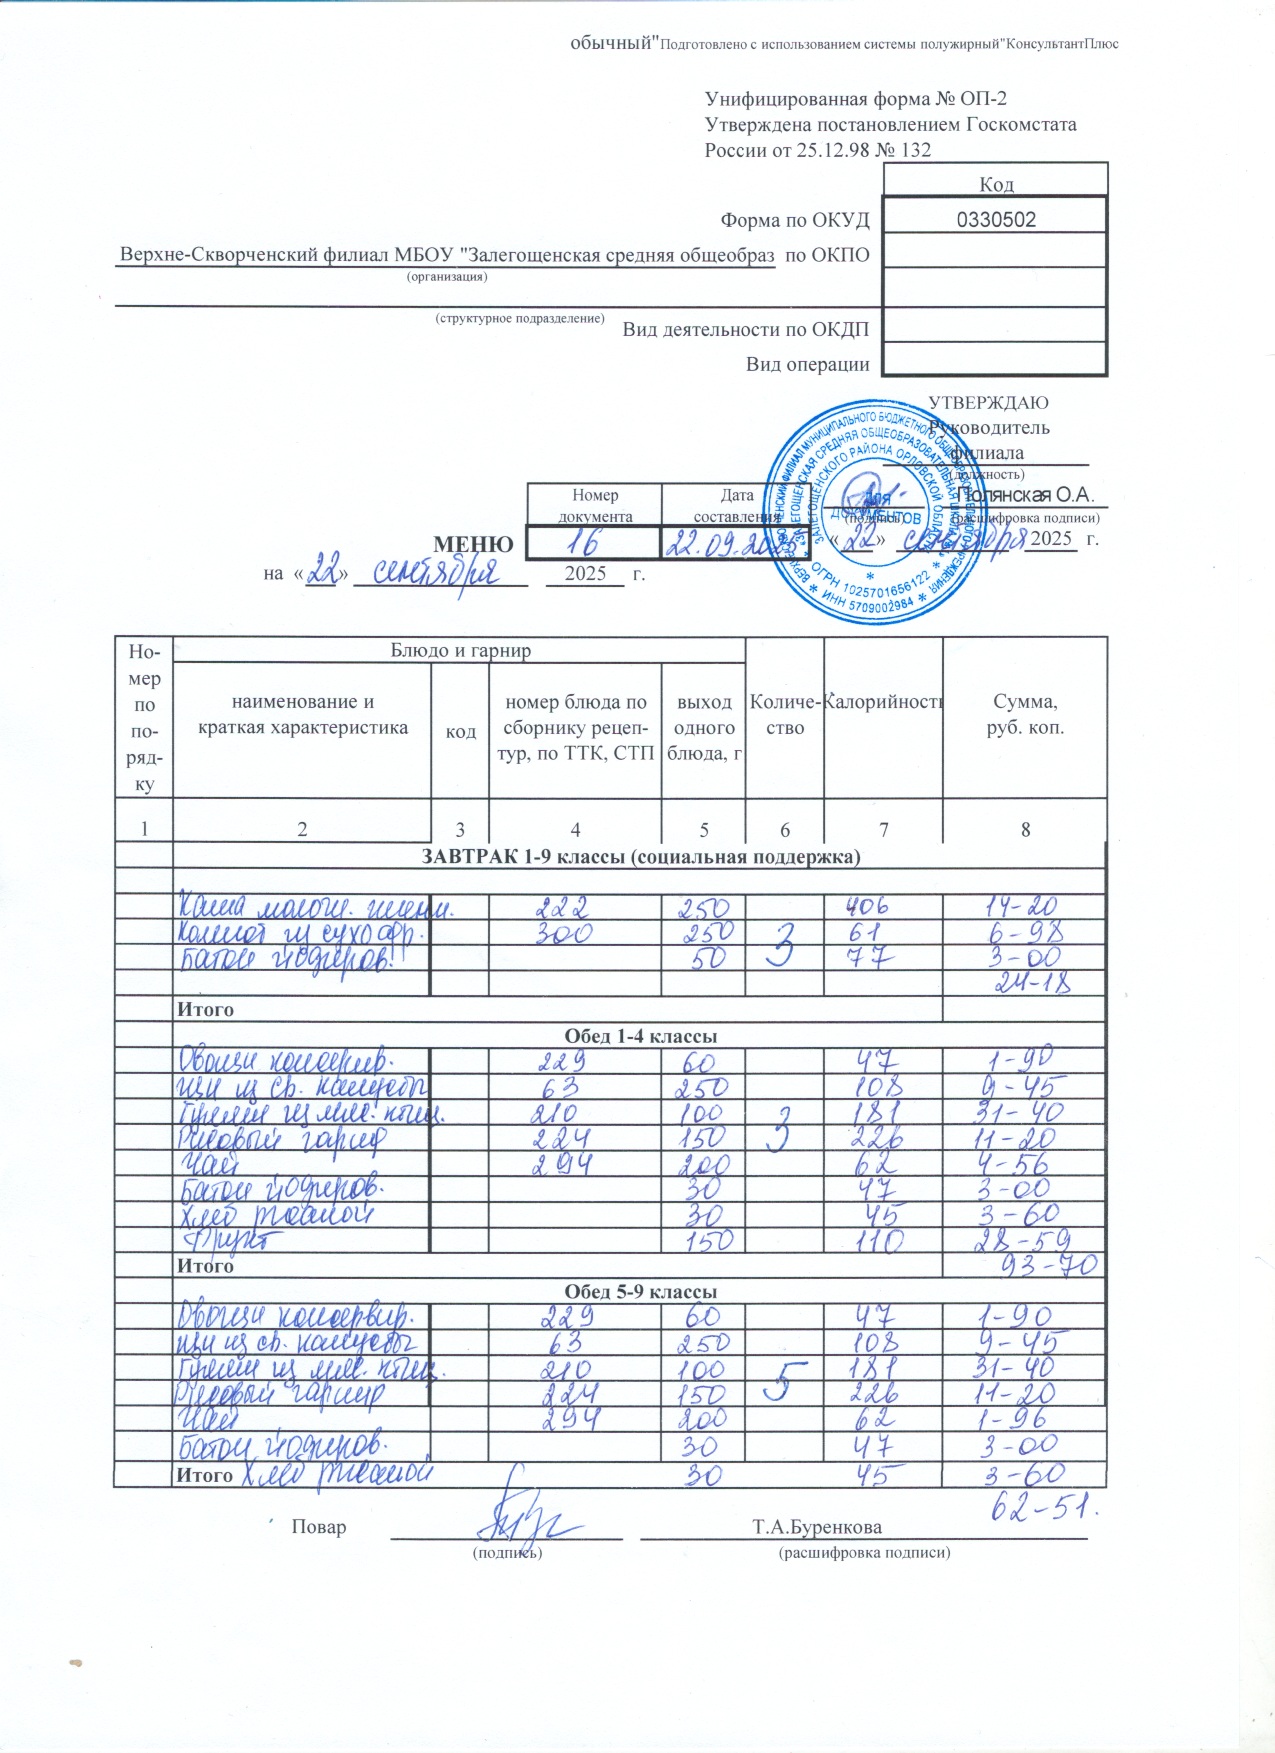 обычный"Подготовлено с использованием системы полужирный"КонсультантПлюс
Унифицированная форма № ОП-2
Утверждена постановлением Госкомстата
России от 25.12.98 № 132
Код
Форма по ОКУД 0330502
Верхне-Скворченский филиал МБОУ "Залегощенская средняя общеобраз по ОКПО
(организация)
(структурное подразделение)
Вид деятельности по ОКДП
Вид операции
УТВЕРЖДАЮ
Руководитель
филиала
(должность)
Полянская О.А.
(подпись) (расшифровка подписи)
«22» сентября 2025 г.
Для
ДОКУМЕНТОВ
ЗАЛЕГОЩЕНСКОГО РАЙОНА ОРЛОВСКОЙ ОБЛАСТИ
ОГРН 1025701656122
ИНН 5709002984
Номер документа Дата составления
МЕНЮ 16 22.09.2025
на «22» сентября 2025 г.
Но-мер по по-ряд-ку Блюдо и гарнир Количе-ство Калорийность Сумма, руб. коп.
наименование и краткая характеристика код номер блюда по сборнику рецеп-тур, по ТТК, СТП выход одного блюда, г
1 2 3 4 5 6 7 8
ЗАВТРАК 1-9 классы (социальная поддержка)
Каша молочн. пшени. 222 250 406 14-20
Компот из сухофр. 300 250 3 61 6-98
Батон йодиров. 50 77 3-00
24-18
Итого
Обед 1-4 классы
Овощи консерв. 229 60 47 1-90
Щи из св. капусты 63 250 108 9-45
Гуляш из мяс. птиц. 210 100 3 181 31-40
Рисовый гарнир 224 150 226 11-20
Чай 294 200 62 4-56
Батон йодиров. 30 47 3-00
Хлеб ржаной 30 45 3-60
Фрукт 150 110 28-59
Итого 93-70
Обед 5-9 классы
Овощи консервир. 229 60 47 1-90
Щи из св. капусты 63 250 108 9-45
Гуляш из мяс. птиц. 210 100 5 181 31-40
Рисовый гарнир 224 150 226 11-20
Чай 294 200 62 1-96
Батон йодиров. 30 47 3-00
Итого Хлеб ржаной 30 45 3-60
62-51.
Повар Т.А.Буренкова
(подпись) (расшифровка подписи)